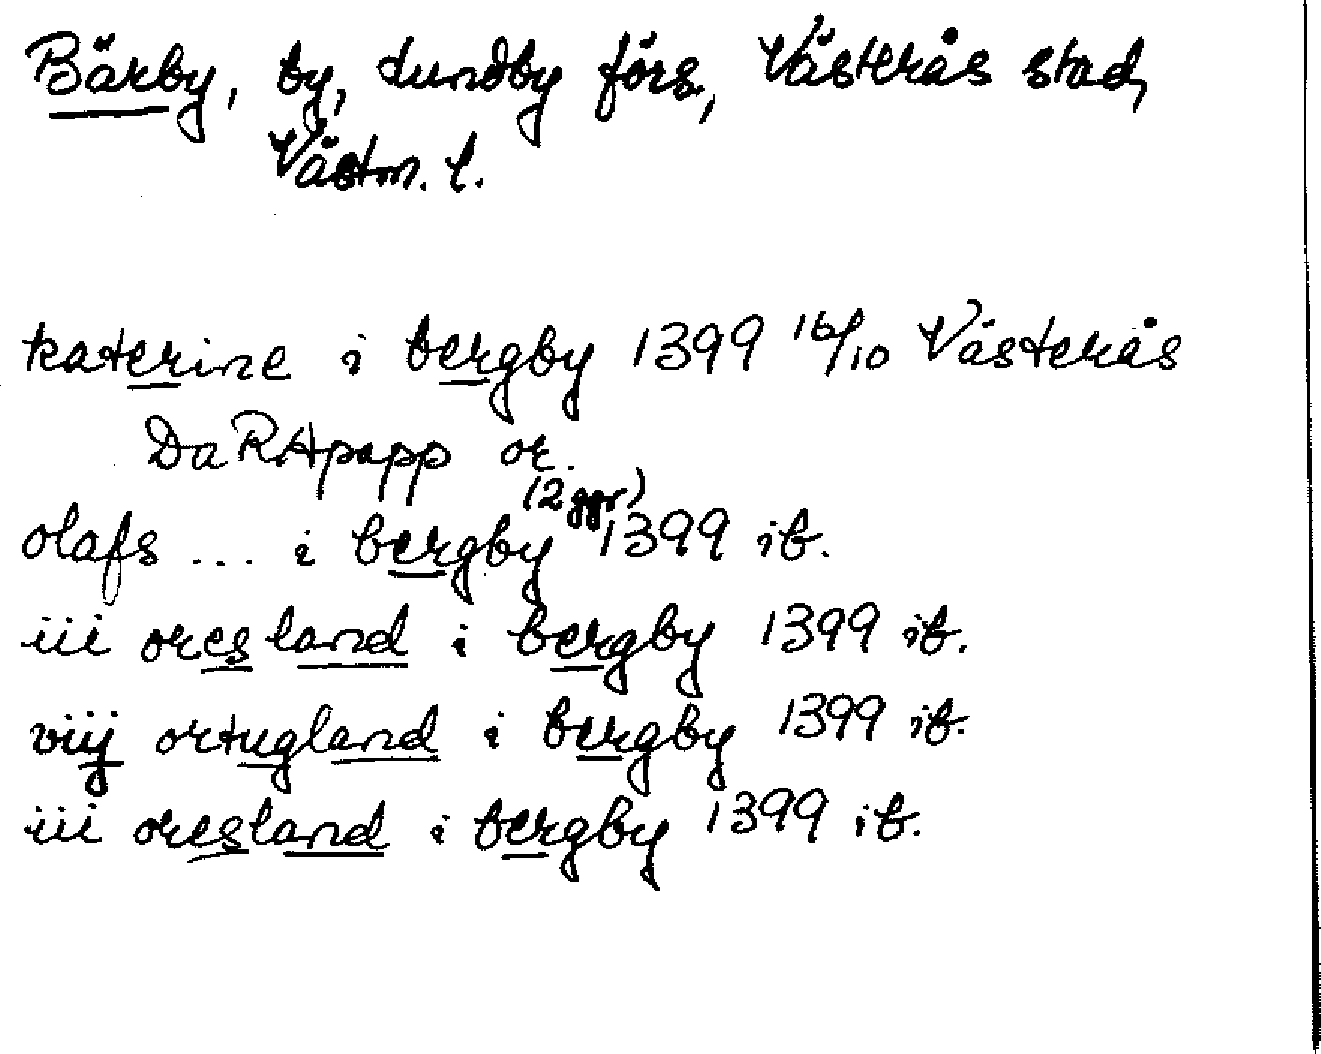 Bärby, by, Lundby förs., Västerås stad,
Västm. l.
katerine i bergby 1399 16/10 Västerås
Da RApapp or.
(2 ggr)
olafs ... i bergby 1399 ib.
iii oresland i bergby 1399 ib.
viij ortugland i bergby 1399 ib.
iii oresland i bergby 1399 ib.